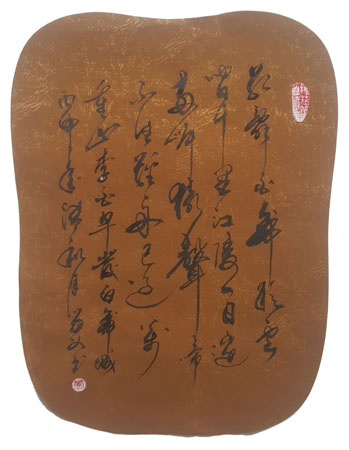 朝辭白帝彩雲
間千里江陵一日還
両岸猿聲啼
不住輕舟已過萬
重山李白早發白帝城
丙申年清秋月書